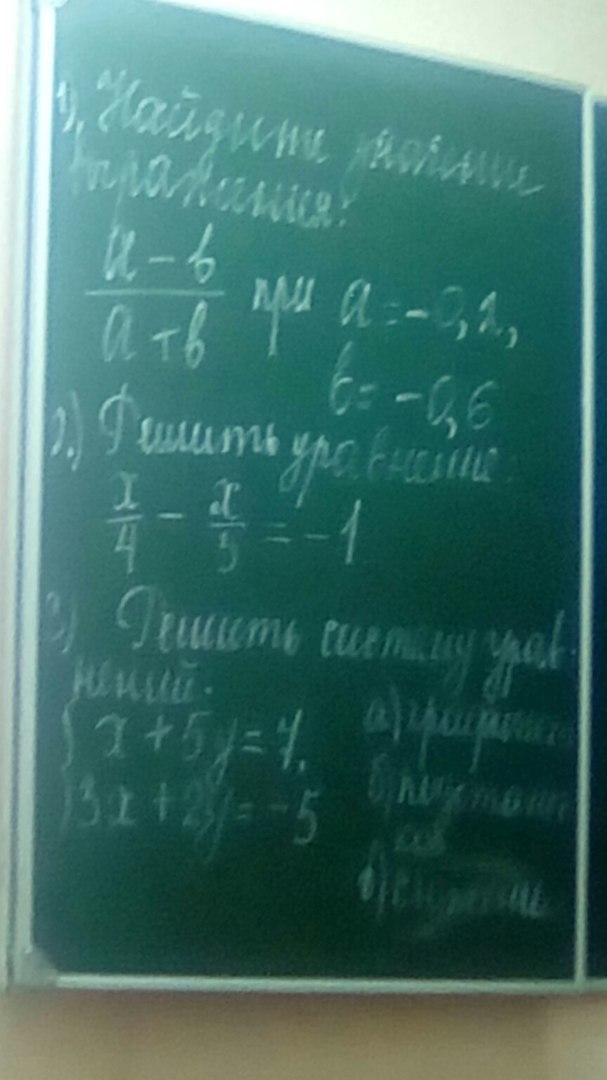 1). Найдите значение
выражения:
a - b
a + b
при a = -0,2,
b = -0,6
2.) Решить уравнение.
x/4 - x/5 = -1
3) Решить систему урав-
нений.
{ x + 5y = 7,
{ 3x + 2y = -5
а)
б)
в)